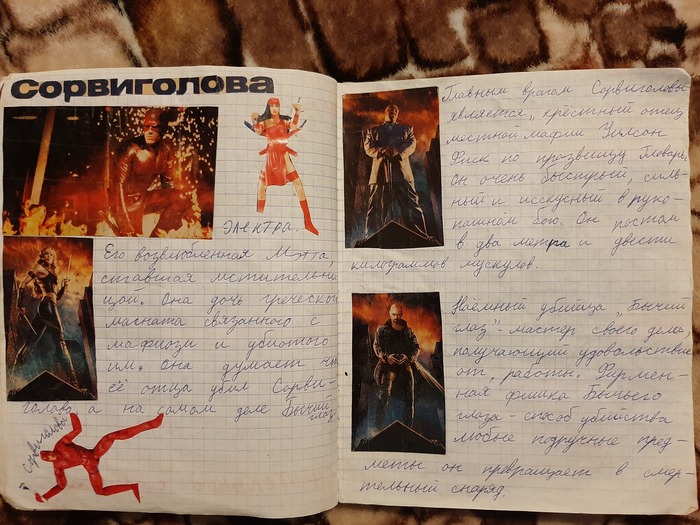 Сорвиголова
Электра.
Его возлюбленная Мэтта
ставшая мстительни
цой. Она дочь греческого
магната связанного с
мафиози и убитого
им. Она думает что
её отца убил Сорви-
голова а на самом деле Бычий
глаз.
Сорвиголова
Главным врагом Сорвиголовы
является „крёстный отец
местной мафии Уилсон
Фиск по прозвищу Главарь.
Он очень быстрый, силь-
ный и исскусный в руко-
пашном бою. Он ростом
в два метра и двести
килограммов мускулов.
Наёмный убийца „Бычий
глаз"- мастер своего дела,
получающий удовольствие
от „работы. Фирмен-
ная фишка Бычьего
глаза - способ убийства
любые подручные пред-
меты он превращает в смер-
тельный снаряд.